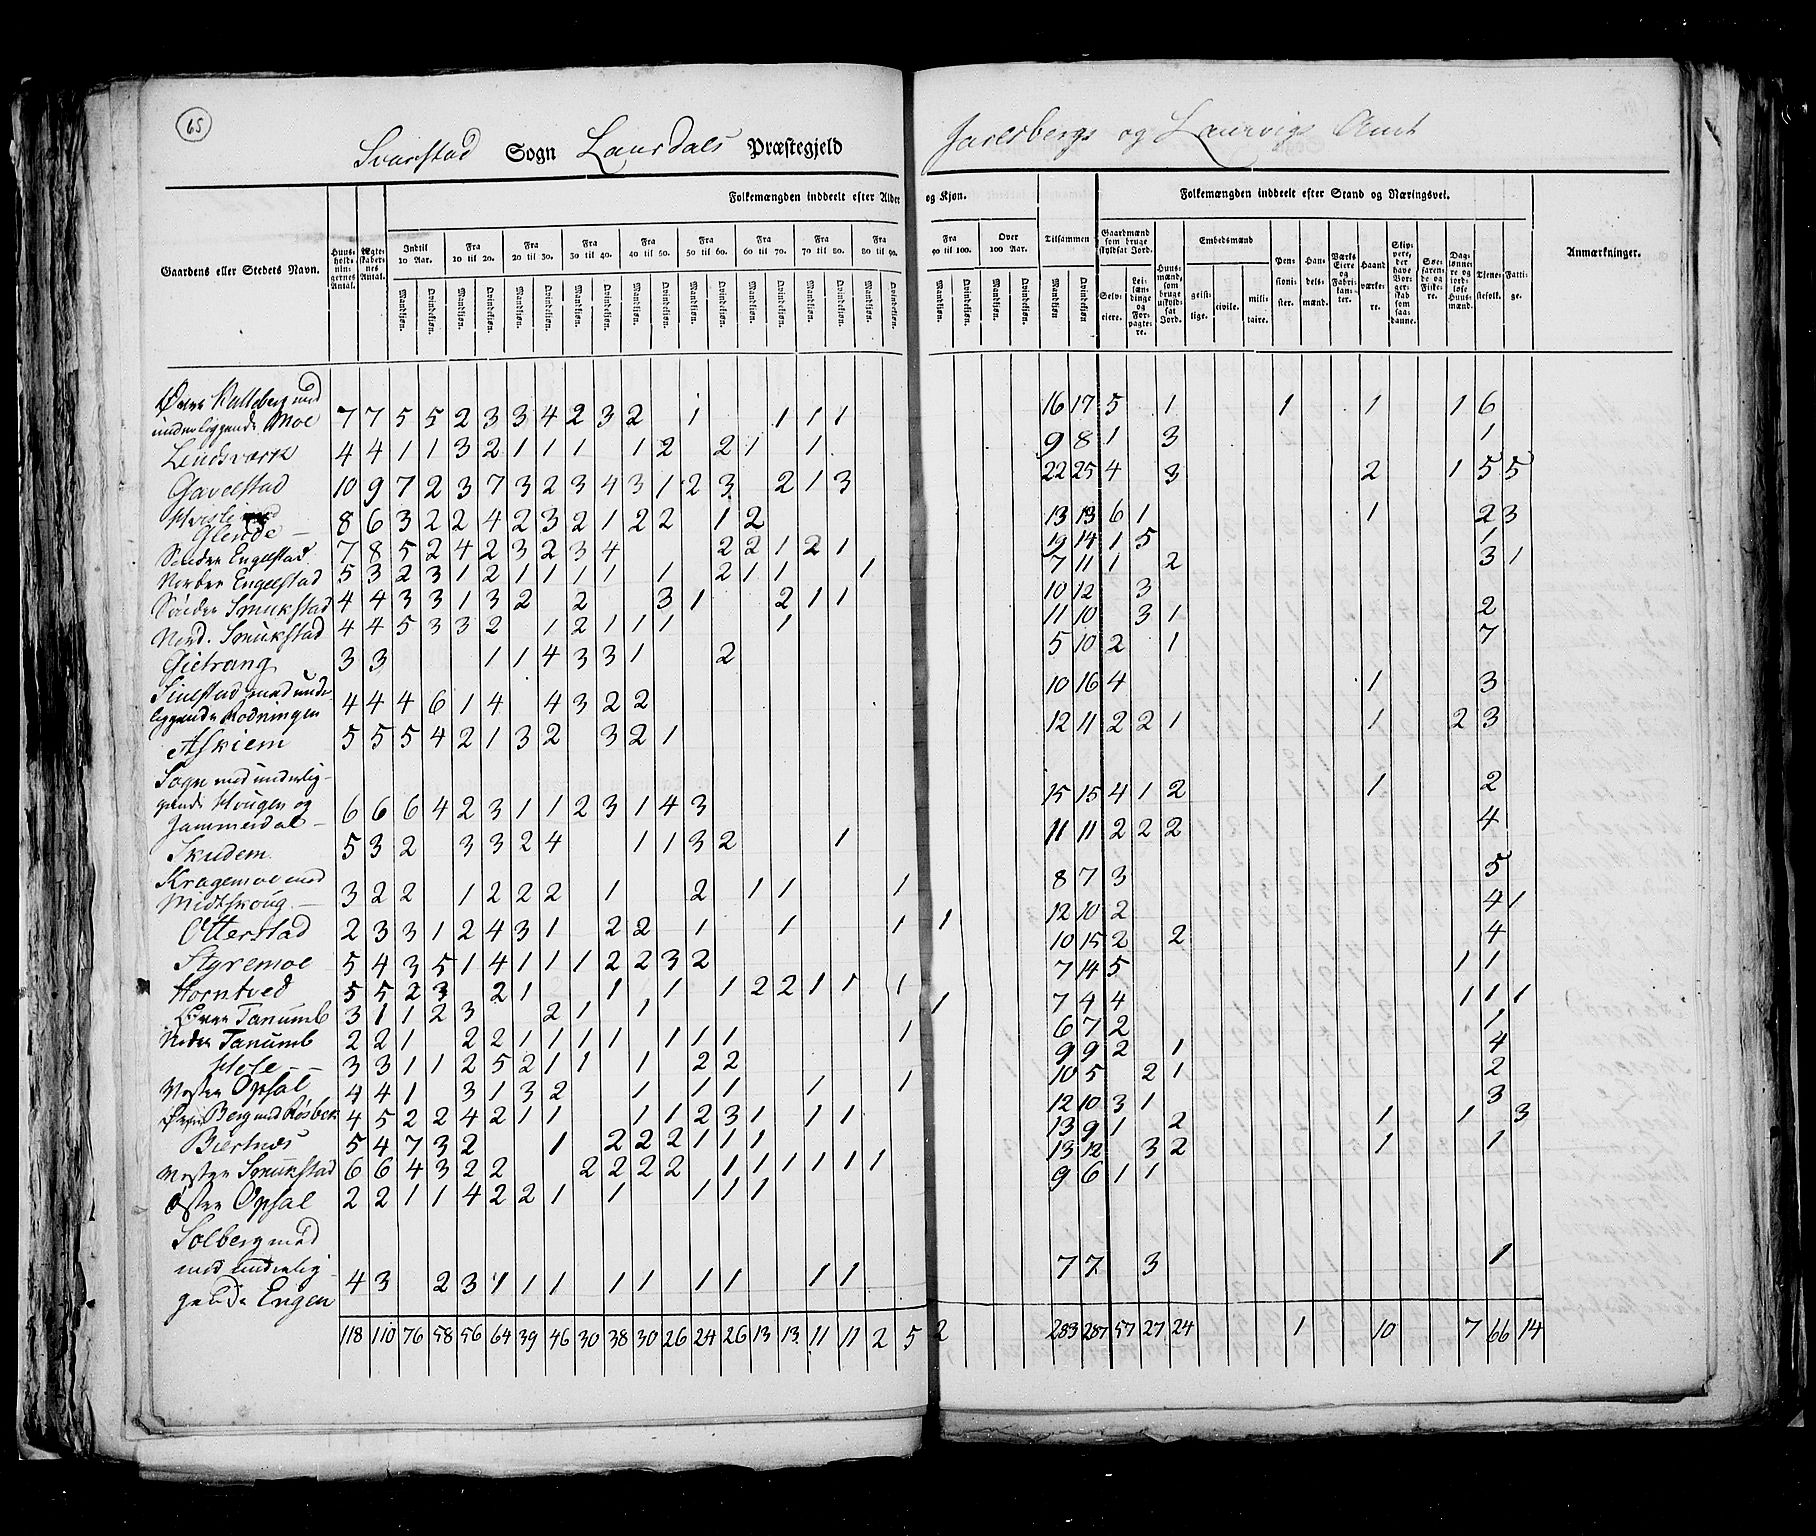 65
Svarstad Sogn Laurdals Præstegjeld Jarlsbergs og Laurvigs Amt
Folkemængden inddeelt efter Alder og Kjøn. Tilsammen Folkemængden inddeelt efter Stand og Næringsvei.
Gaardens eller Stedets Navn. Huus-holdningernes Antal. Ægteskabernes Antal. Indtil 10 Aar. Fra 10 til 20. Fra 20 til 30. Fra 30 til 40. Fra 40 til 50. Fra 50 til 60. Fra 60 til 70. Fra 70 til 80. Fra 80 til 90. Fra 90 til 100. Over 100 Aar. Gaardmænd som bruge skyldsat Jord. Huusmænd, som bruge uskyldsat Jord. Embedsmænd Pensionister. Handelsmænd. Værks Eiere og Fabrikanter. Haandværkere. Skippere, der have Borgerskab som saadanne. Søefarende og Fiskere. Daglønnere og jordløse Huusmænd. Tjenestefolk. Fattige. Anmærkninger.
Mandkjøn. Qvindekjøn. Selveiere. Leilændinge og Forpagtere. geistlige. civile. militaire.
underliggende Moe 7 7 5 5 2 3 3 4 2 3 2 1 1 1 1 16 17 5 1 1 1 1 6
Lindsværk 4 4 1 1 3 2 1 1 1 1 2 2 1 1 9 8 1 3 1
Gavelstad 10 9 7 2 3 7 3 2 3 4 3 1 2 3 2 1 3 22 25 4 3 2 1 5 5
Hvisle med
Glende 8 6 3 2 2 4 2 3 2 1 2 2 1 2 13 13 6 1 1 2 3
Sønder Engelstad 7 8 5 2 4 2 3 2 3 4 2 2 1 2 1 19 14 1 5 1
Norder Engelstad 5 3 2 3 1 2 1 1 1 1 1 2 1 1 1 7 11 1 2 3 1
Sønder Smukstad 4 4 3 3 1 3 2 2 3 1 2 1 1 10 12 3
Nord. Smukstad 4 4 5 3 3 2 1 2 1 1 1 1 11 10 3 1 2
Gietrang 3 3 1 1 4 3 3 1 2 5 10 2 1 7
Sinestad med underliggende Rodningen 4 4 4 6 1 4 4 3 2 2 10 16 4 1 3
Askiem 5 5 5 4 2 1 3 2 3 2 1 12 11 2 2 1 1 2 3
Sogn med underlig-
gende Hougen og
Jammerdal 6 6 6 4 2 3 1 1 2 3 1 4 3 15 15 4 1 2 1 2
Skudem 5 3 2 3 3 2 4 1 1 3 2 1 11 11 2 2 2 4
Kragemoe med
Midtskoug 3 2 2 1 2 2 2 1 2 1 1 1 8 7 3 5
Otterstad 2 3 3 1 2 4 3 1 2 2 1 1 1 1 12 10 2 4 1
Styremoe 5 4 3 5 1 4 1 1 1 2 2 3 2 10 15 2 2 4
Horntved 5 5 2 3 2 1 1 1 1 2 2 1 1 1 7 14 5 1 1
Over Tanumb 3 1 1 2 3 2 1 1 1 7 4 4 1 1 1
Neder Tanumb 2 2 1 2 2 1 1 1 1 1 1 1 1 6 7 2 1
Hole 3 3 1 1 2 5 2 1 1 1 2 2 9 9 2 1 4
Vester Opsal 4 4 1 3 1 3 2 1 1 1 1 1 10 5 2 1 2
Over Berg med Røsbek 4 5 2 2 4 2 1 1 1 1 2 3 1 1 1 12 10 3 1 3
Biertnes 5 4 7 3 2 1 2 2 2 1 1 1 13 9 1 2 1 1 3
Vester Smukstad 6 6 4 3 2 2 2 2 2 2 1 1 1 1 1 1 13 12 3 2 1 1
Øster Opsal 2 2 1 1 4 2 2 1 1 1 1 1 9 6 1 1
Solberg med
med underlig
gende Engen 4 3 2 3 1 1 1 1 1 1 1 1 1 7 7 3 1
118 110 76 58 56 64 39 46 30 38 30 26 24 26 13 13 11 11 2 5 2 283 287 57 27 24 1 10 7 66 14